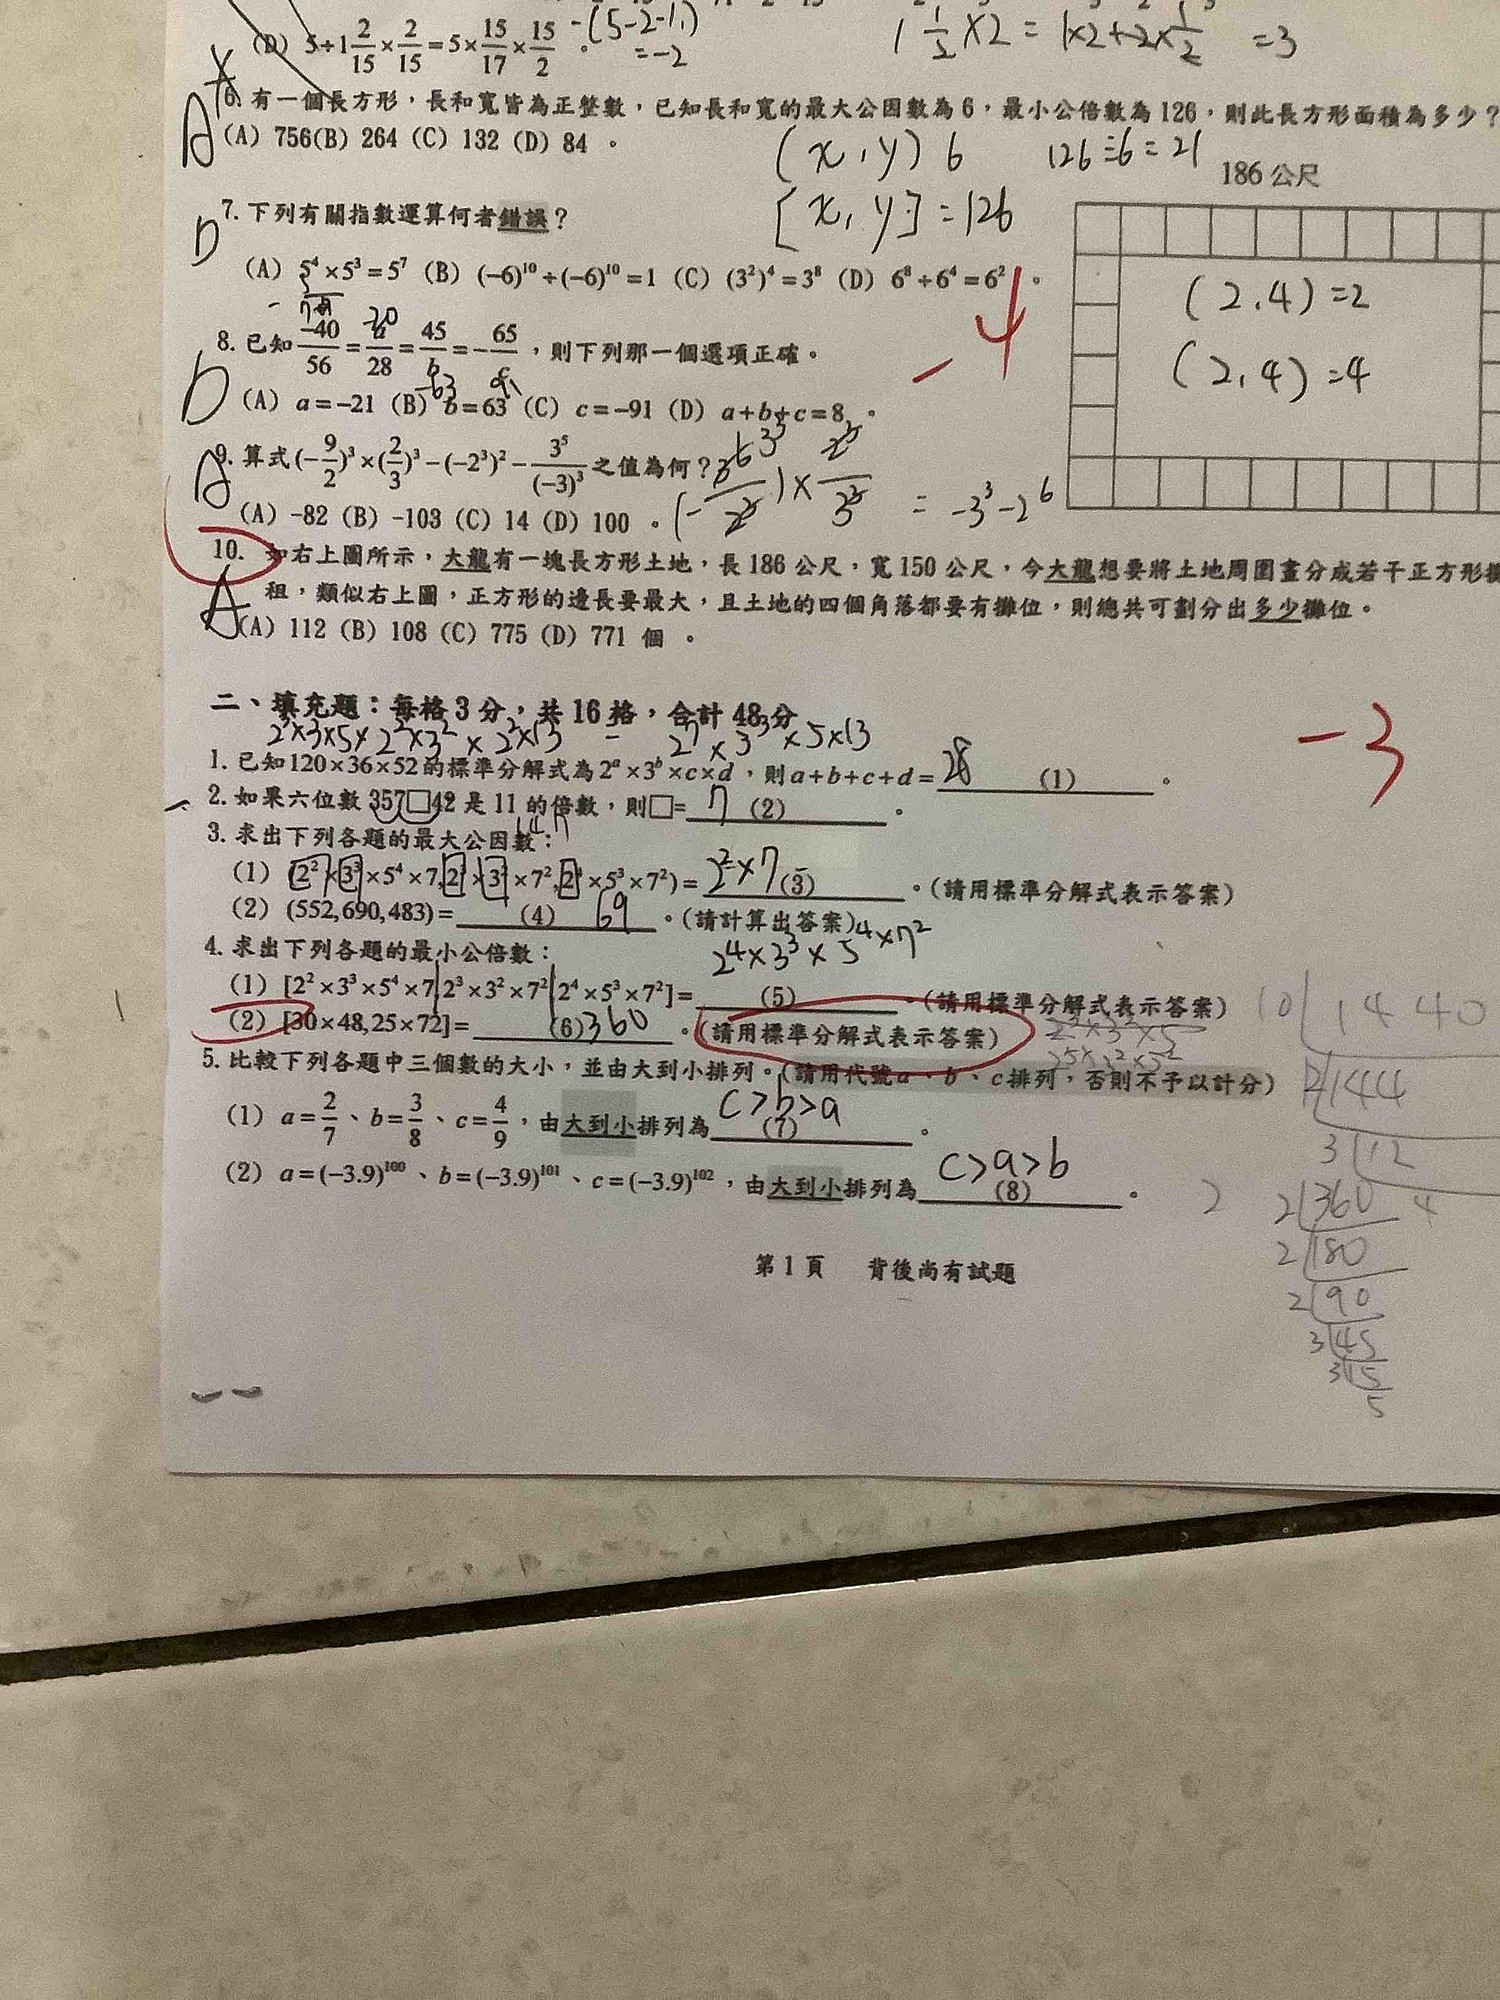 (D) 5÷1 2/15 × 2/15 = 5× 15/17 × 15/2 。
-(5-2-1.)
=-2
1 1/2 ×2 = 1×2+2×1/2 =3
A 6. 有一個長方形，長和寬皆為正整數，已知長和寬的最大公因數為 6，最小公倍數為 126，則此長方形面積為多少？
(A) 756(B) 264 (C) 132 (D) 84 。
(x,y) 6
126÷6=21
186 公尺
[x,y]=126
D 7. 下列有關指數運算何者錯誤？
(A) 5⁴×5³=5⁷ (B) (−6)¹⁰÷(−6)¹⁰=1 (C) (3²)⁴=3⁸ (D) 6⁸÷6⁴=6² 。
(2,4)=2
(2,4)=4
-4
D 8. 已知 −40/56 = a/28 = 45/b = − 65/c ，則下列那一個選項正確。
-20
-63
91
(A) a=−21 (B) b=63 (C) c=−91 (D) a+b+c=8 。
A 9. 算式(−9/2)³×(2/3)³−(−2³)²− 3⁵/(−3)³ 之值為何？
= -3³-2⁶
(A) -82 (B) -103 (C) 14 (D) 100 。
10. 如右上圖所示，大龍有一塊長方形土地，長 186 公尺，寬 150 公尺，今大龍想要將土地周圍畫分成若干正方形
A 租，類似右上圖，正方形的邊長要最大，且土地的四個角落都要有攤位，則總共可劃分出多少攤位。
(A) 112 (B) 108 (C) 775 (D) 771 個 。
二、填充題：每格 3 分，共 16 格，合計 48 分
-3
2³×3×5×2²×3²×2²×13 = 2⁷×3³×5×13
1. 已知120×36×52的標準分解式為 2ᵃ×3ᵇ×c×d，則 a+b+c+d= 28 (1) 。
2. 如果六位數 357□42 是 11 的倍數，則□= 7 (2) 。
3. 求出下列各題的最大公因數：
(1) (2²×3³×5⁴×7,2³×3²×7²,2⁴×5³×7²)= 2²×7 (3) 。(請用標準分解式表示答案)
(2) (552,690,483)= (4) 69 。(請計算出答案)
4. 求出下列各題的最小公倍數：
2⁴×3³×5⁴×7²
(1) [2²×3³×5⁴×7,2³×3²×7²,2⁴×5³×7²]= (5) 。(請用標準分解式表示答案)
(2) [30×48,25×72]= (6) 360 。(請用標準分解式表示答案)
2³×3²×5
2⁵×3²×5²
5. 比較下列各題中三個數的大小，並由大到小排列。(請用代號a、b、c排列，否則不予以計分)
(1) a=2/7、b=3/8、c=4/9，由大到小排列為 c>b>a (7) 。
(2) a=(−3.9)¹⁰⁰、b=(−3.9)¹⁰¹、c=(−3.9)¹⁰²，由大到小排列為 c>a>b (8) 。
10 1440
12 144
3 12
4
2
2 360
2 180
2 90
3 45
3 15
5
第 1 頁 背後尚有試題